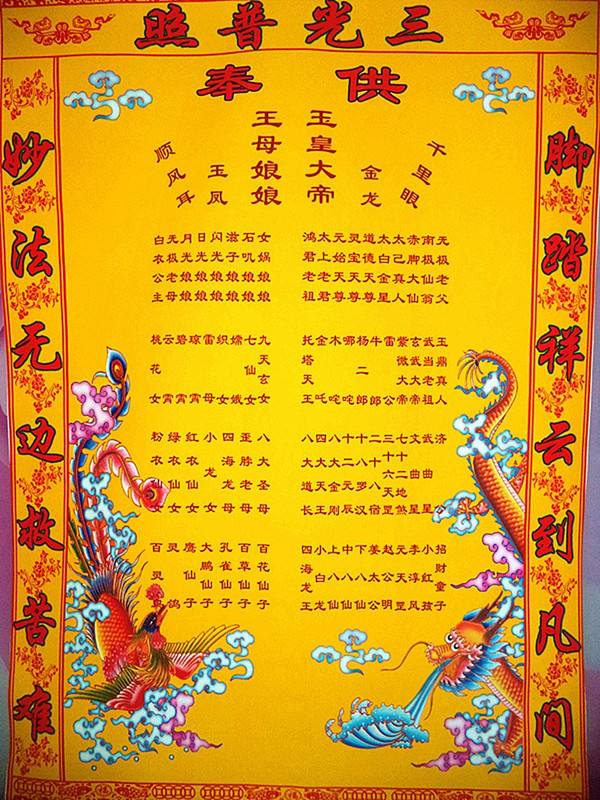 三光普照
供奉
脚踏祥云到凡间
千里眼
金龙
玉皇大帝
王母娘娘
玉凤
顺风耳
无极老父
南极仙翁
赤脚大仙
太己真人
太白金星
道德天尊
灵宝天尊
元始天尊
太上老君
鸿君老祖
女娲娘娘
石叽娘娘
滋子娘娘
闪光娘娘
日光娘娘
月光娘娘
无极老母
白衣公主
玉鼎真人
武当老祖
玄武大帝
紫微大帝
雷公
牛郎
杨二郎
哪咤
木咤
金吒
托塔天王
九天玄女
七仙女
嫦娥
织女
雷母
琼霄
碧霄
云霄
桃花女
济公
武曲星
文曲星
七十二地煞
三十六天罡
二十八宿
十八罗汉
十二元辰
八大金刚
四大天王
八大道长
八大圣母
歪脖老母
四海龙母
小龙女
红衣仙女
绿衣仙女
粉衣仙女
招财童子
小红孩
李淳风
元天罡
赵公明
姜太公
下八仙
中八仙
上八仙
小白龙
四海龙王
百花仙子
百草仙子
孔雀仙子
大鹏仙子
鹰仙子
灵鸽
百灵鸟
妙法无边救苦难